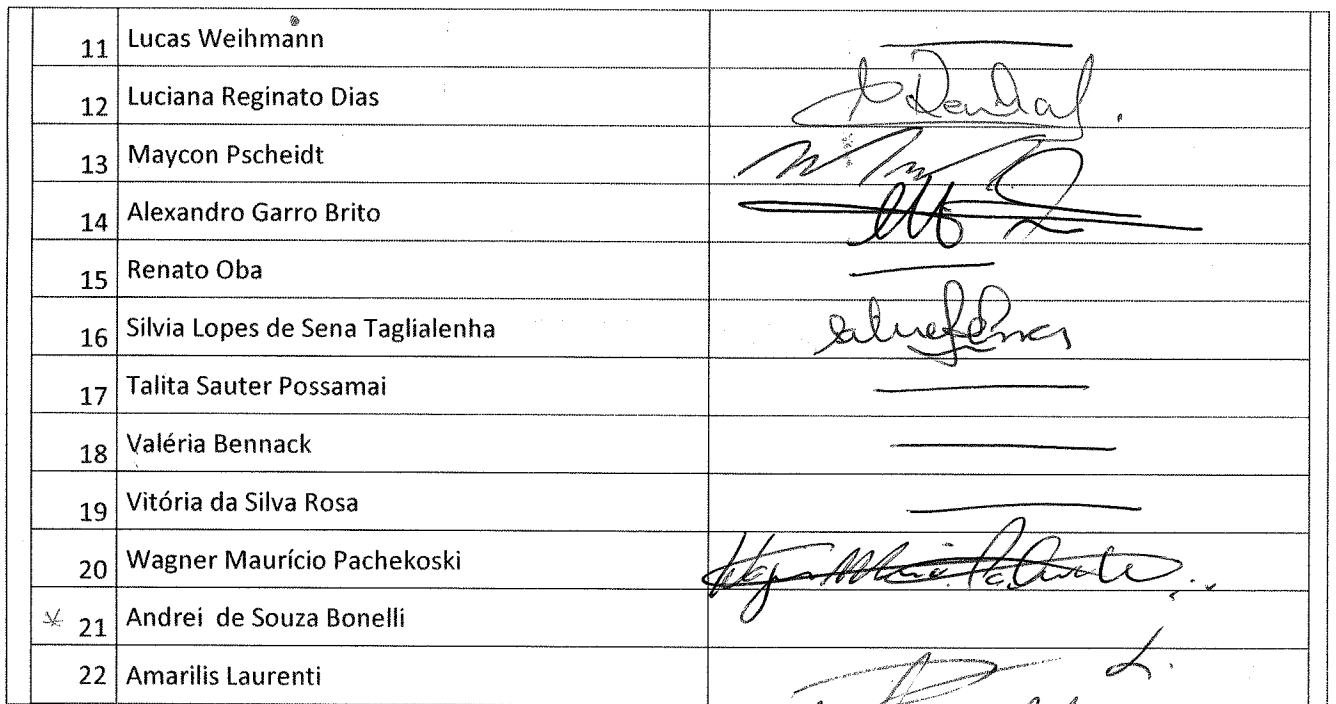 11 Lucas Weihmann
12 Luciana Reginato Dias
13 Maycon Pscheidt
14 Alexandro Garro Brito
15 Renato Oba
16 Silvia Lopes de Sena Taglialenha
17 Talita Sauter Possamai
18 Valéria Bennack
19 Vitória da Silva Rosa
20 Wagner Maurício Pachekoski
21 Andrei de Souza Bonelli
22 Amarilis Laurenti